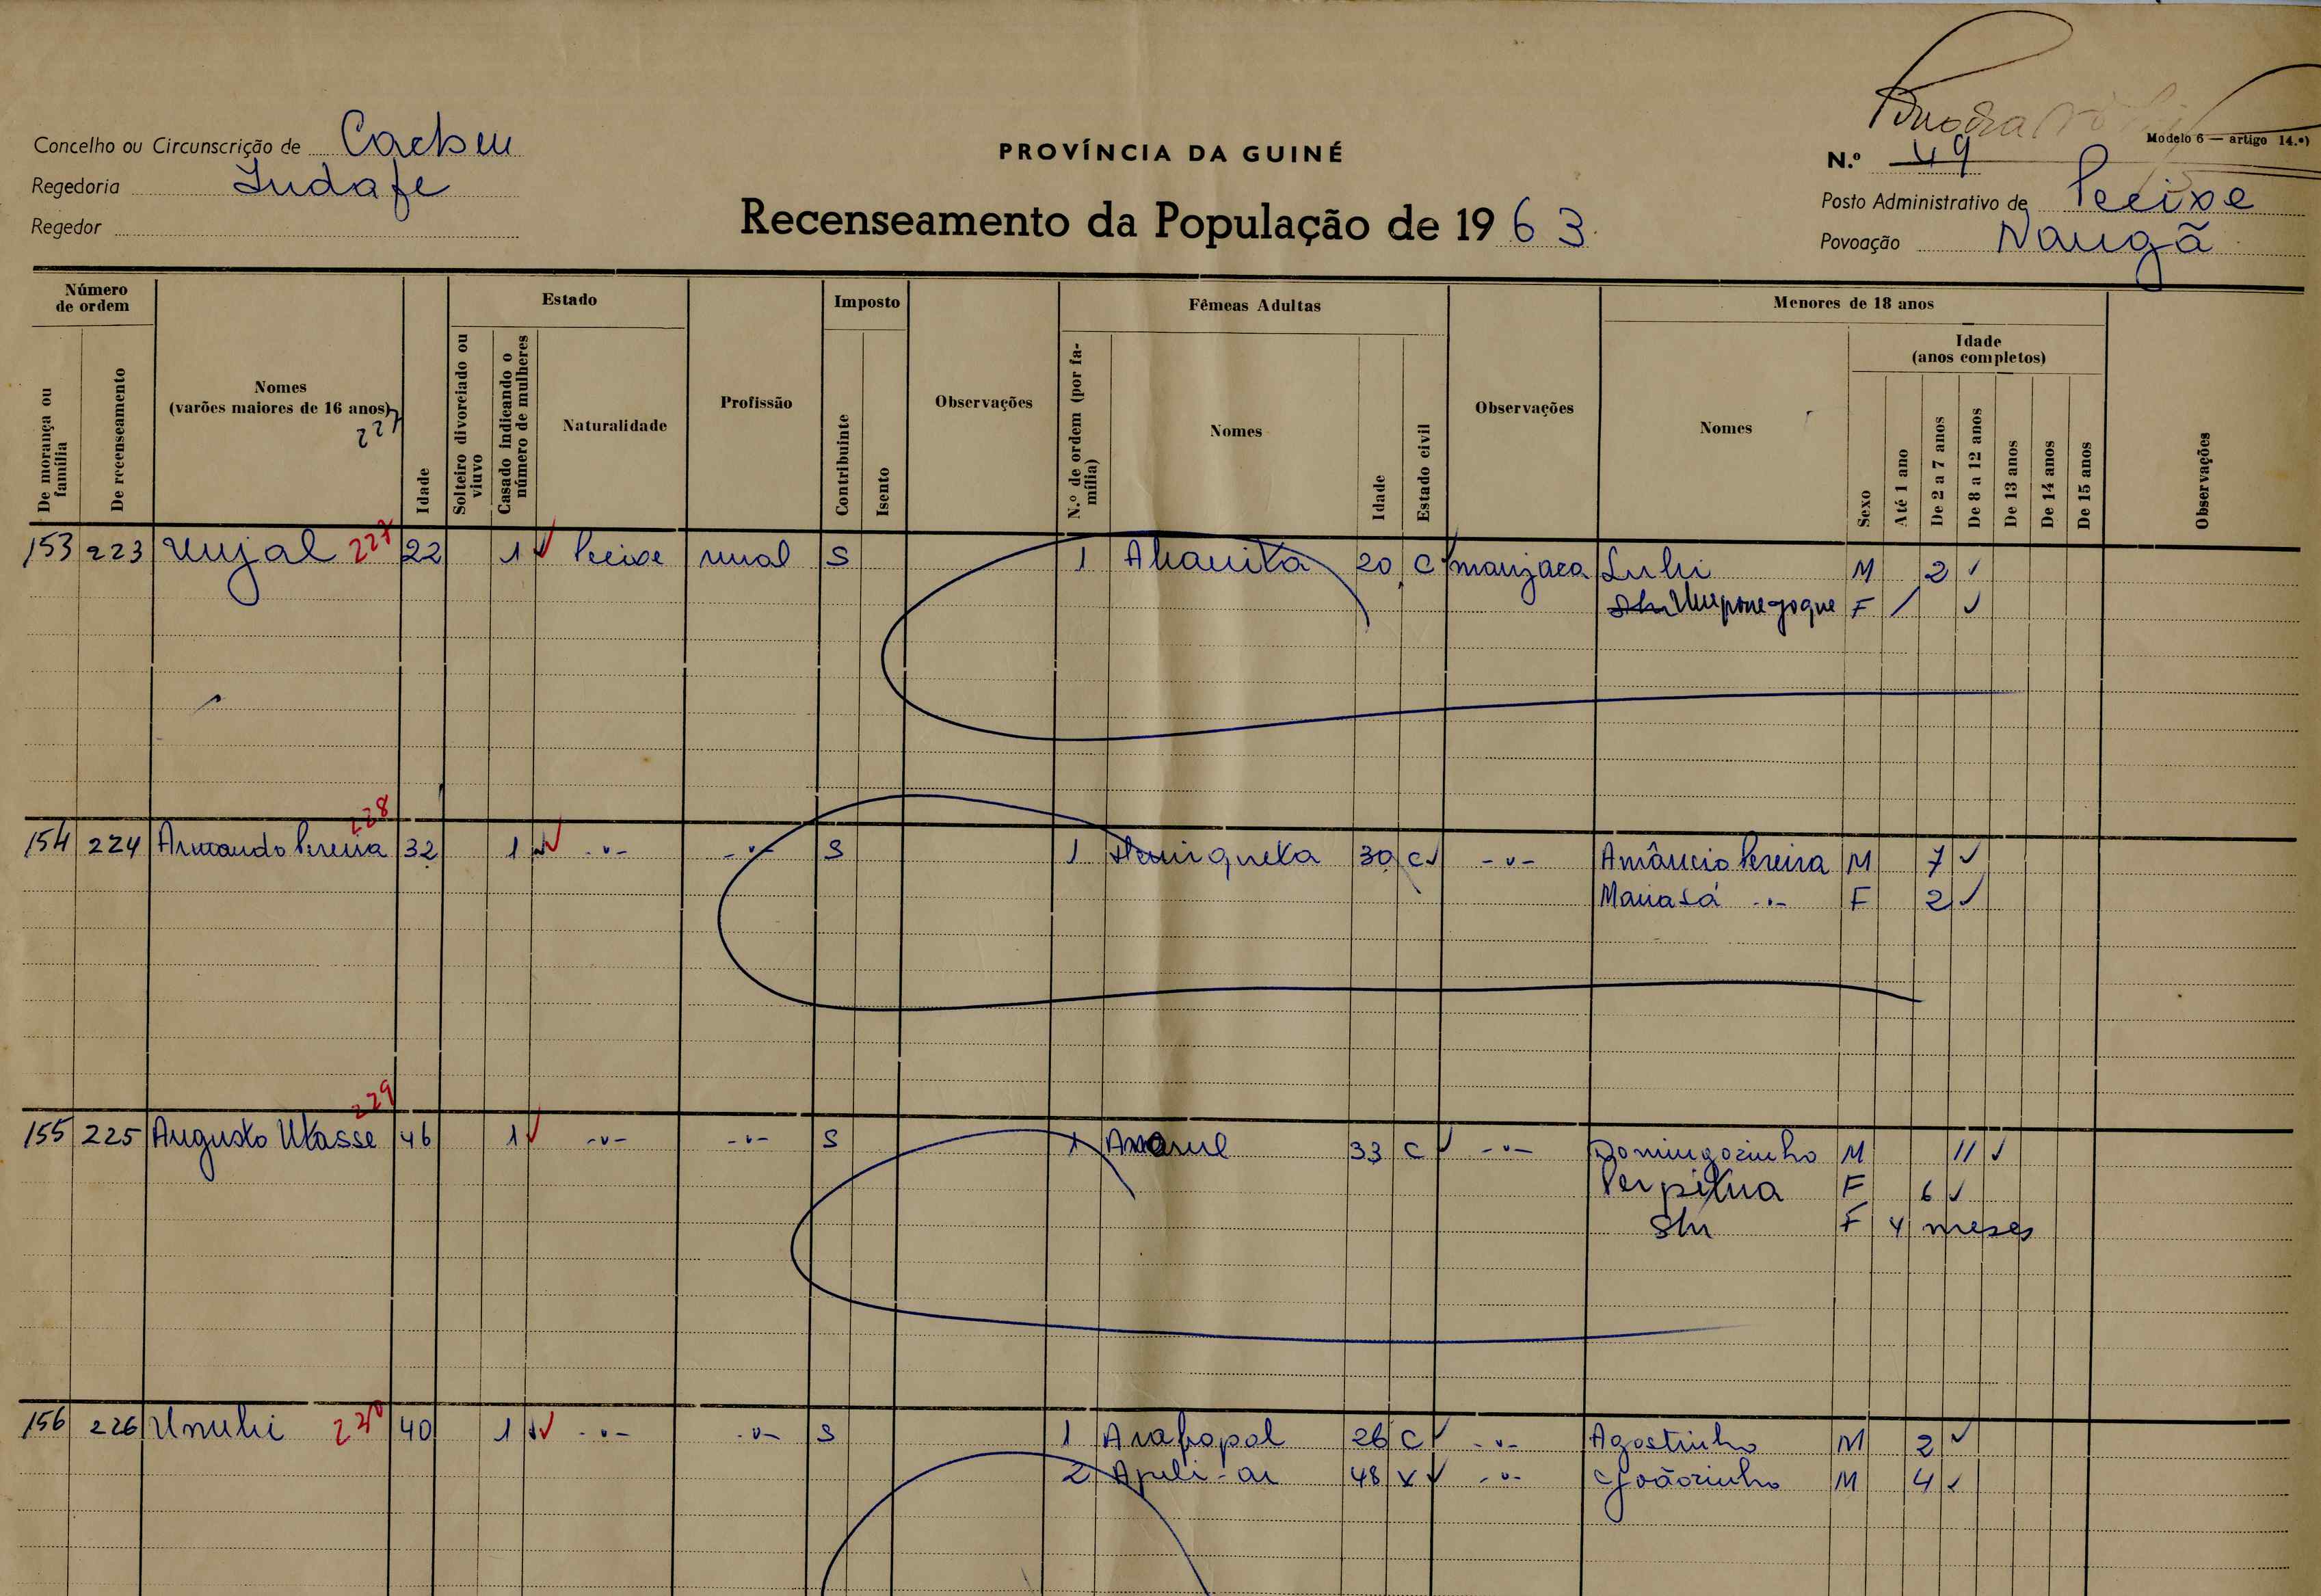 Concelho ou Circunscrição de Cacheu
Regedoria Indafe
Regedor
PROVÍNCIA DA GUINÉ
Recenseamento da População de 1963
Modelo 6 — artigo 14.º)
N.º 49
Posto Administrativo de Pecixe
Povoação Nangã
Número de ordem
De morança ou família
De recenseamento
Nomes
(varões maiores de 16 anos)
227
Idade
Estado
Solteiro divorciado ou viuvo
Casado indicando o número de mulheres
Naturalidade
Profissão
Imposto
Contribuinte
Isento
Observações
Fêmeas Adultas
N.º de ordem (por família)
Nomes
Idade
Estado civil
Observações
Menores de 18 anos
Nomes
Sexo
Idade
(anos completos)
Até 1 ano
De 2 a 7 anos
De 8 a 12 anos
De 13 anos
De 14 anos
De 15 anos
Observações
153 223 Unjal 227 22 1 Pecixe rural S 1 20 C manjaca Luhi M 2
F
154 224 Armando Pereira 228 32 1 -"- -"- S 1 Henriqueta 30 C -"- Amâncio Pereira M 7
Maria Sá -"- F 2
155 225 Augusto Utasse 229 46 1 -"- -"- S 1 33 C -"- Domingozinho M 11
Perpitua F 6
Shi F 4 meses
156 226 Unuhi 230 40 1 -"- -"- S 1 Arafopol 26 C -"- Agostinho M 2
2 Apili-ar 48 V -"- Joãozinho M 4